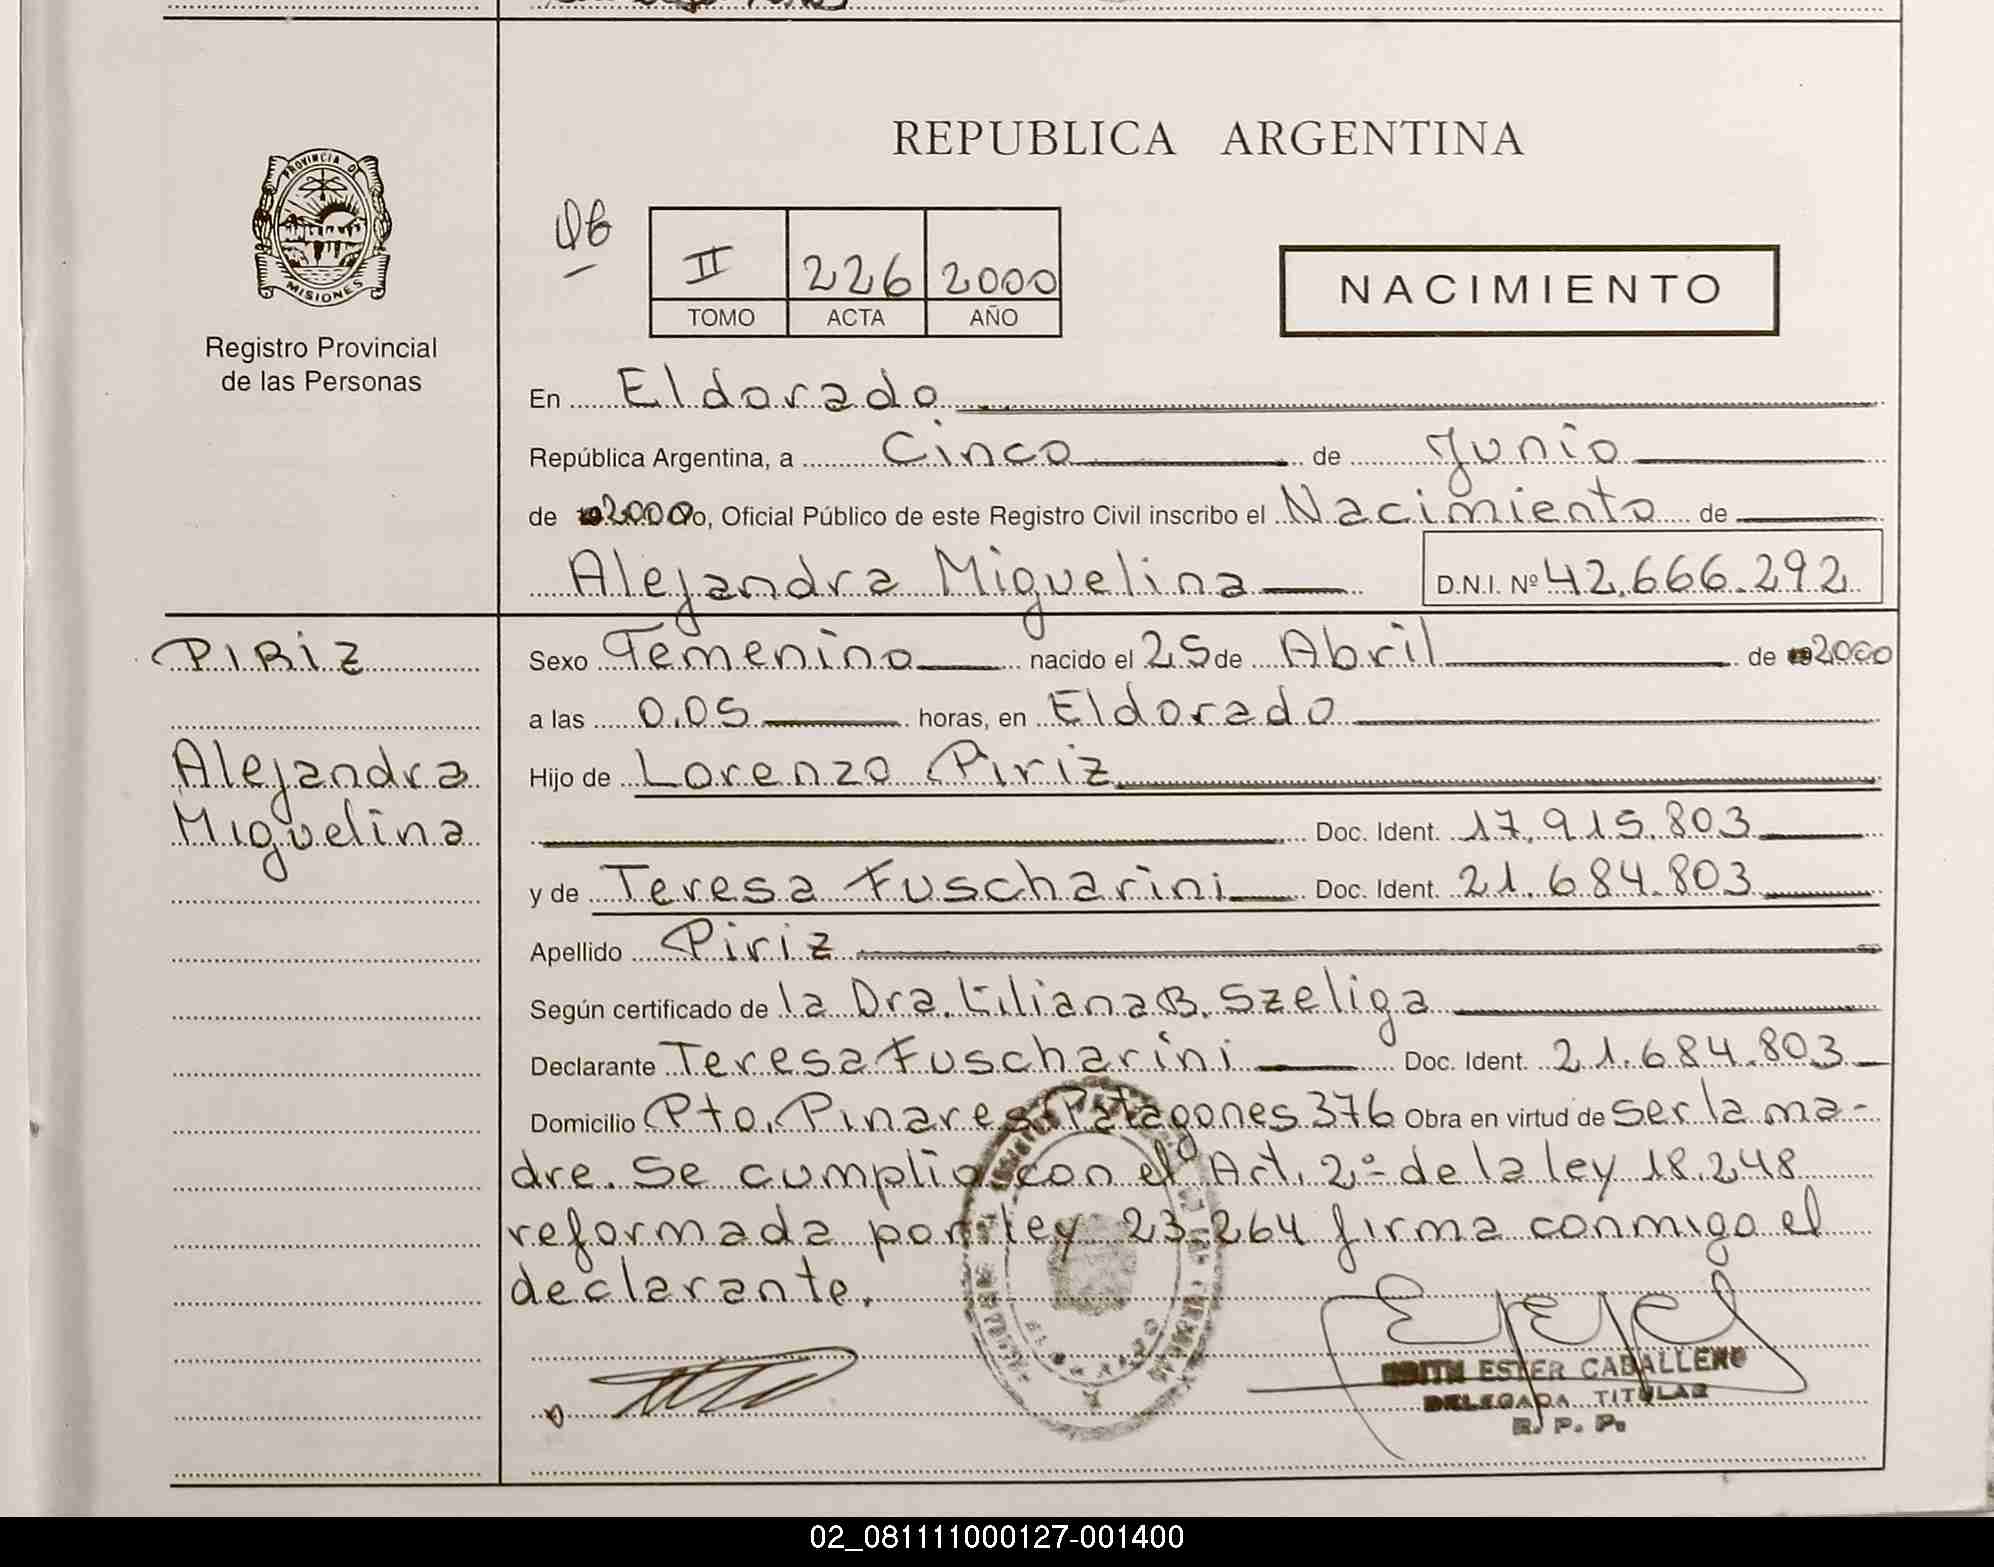 REPUBLICA ARGENTINA
PROVINCIA DE
MISIONES
Registro Provincial
de las Personas
II 226 2000
TOMO ACTA AÑO
NACIMIENTO
En Eldorado
República Argentina, a Cinco de Junio
de 2000 Yo, Oficial Público de este Registro Civil inscribo el Nacimiento de
Alejandra Miguelina D.N.I. Nº 42.666.292
PIRIZ
Alejandra
Miguelina
Sexo Femenino nacido el 25 de Abril de 2000
a las 0.05 horas, en Eldorado
Hijo de Lorenzo Piriz
Doc. Ident. 17.915.803
y de Teresa Fuscharini Doc. Ident. 21.684.803
Apellido Piriz
Según certificado de la Dra. Liliana B. Szeliga
Declarante Teresa Fuscharini Doc. Ident. 21.684.803
Domicilio Pto. Pinares Patagones 376 Obra en virtud de ser la ma-
dre. Se cumplio con el Art. 2º de la ley 18.248
reformada por ley 23.264 firma conmigo el
declarante.
EDITH ESTER CABALLERO
DELEGADA TITULAR
R. P. P.
02_081111000127-001400